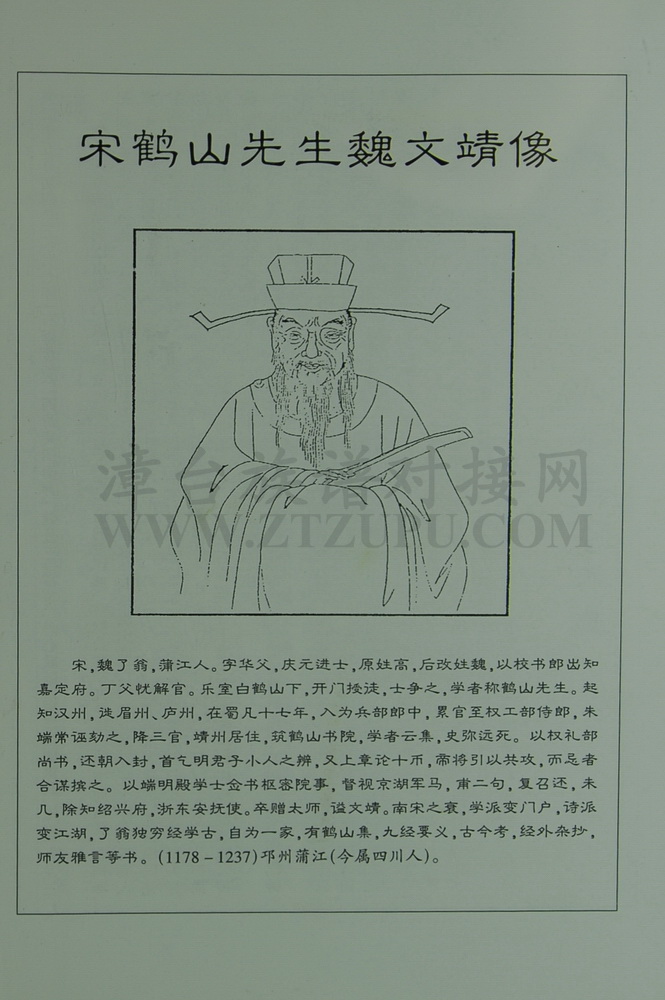 宋鹤山先生魏文靖像
漳台族谱对接网
WWW.ZTZUPU.COM
宋,魏了翁,蒲江人。字华父,庆元进士,原姓高,后改姓魏,以校书郎出知
嘉定府。丁父忧解官。乐室白鹤山下,开门授徒,士争之,学者称鹤山先生。起
知汉州,徙眉州、庐州,在蜀凡十七年,入为兵部郎中,累官至权工部侍郎,朱
端常诬劾之,降三官,靖州居住,筑鹤山书院,学者云集,史弥远死。以权礼部
尚书,还朝入封,首乞明君子小人之辨,又上章论十币,帝将引以共攻,而忌者
合谋摈之。以端明殿学士佥书枢密院事,督视京湖军马,甫二旬,复召还,未
几,除知绍兴府,浙东安抚使。卒赠太师,谥文靖。南宋之衰,学派变门户,诗派
变江湖,了翁独穷经学古,自为一家,有鹤山集,九经要义,古今考,经外杂抄,
师友雅言等书。(1178－1237)邛州蒲江(今属四川人)。